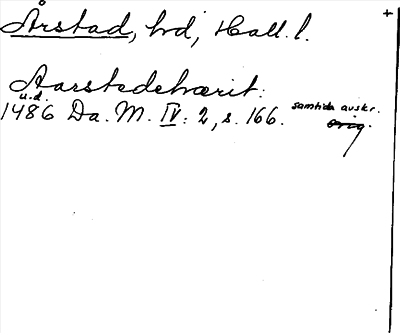 Årstad, hd, Hall. l.
+
Aarstadehærit:
u.d.
1486 Da. M. IV: 2, s. 166. samtida avskr.
orig.